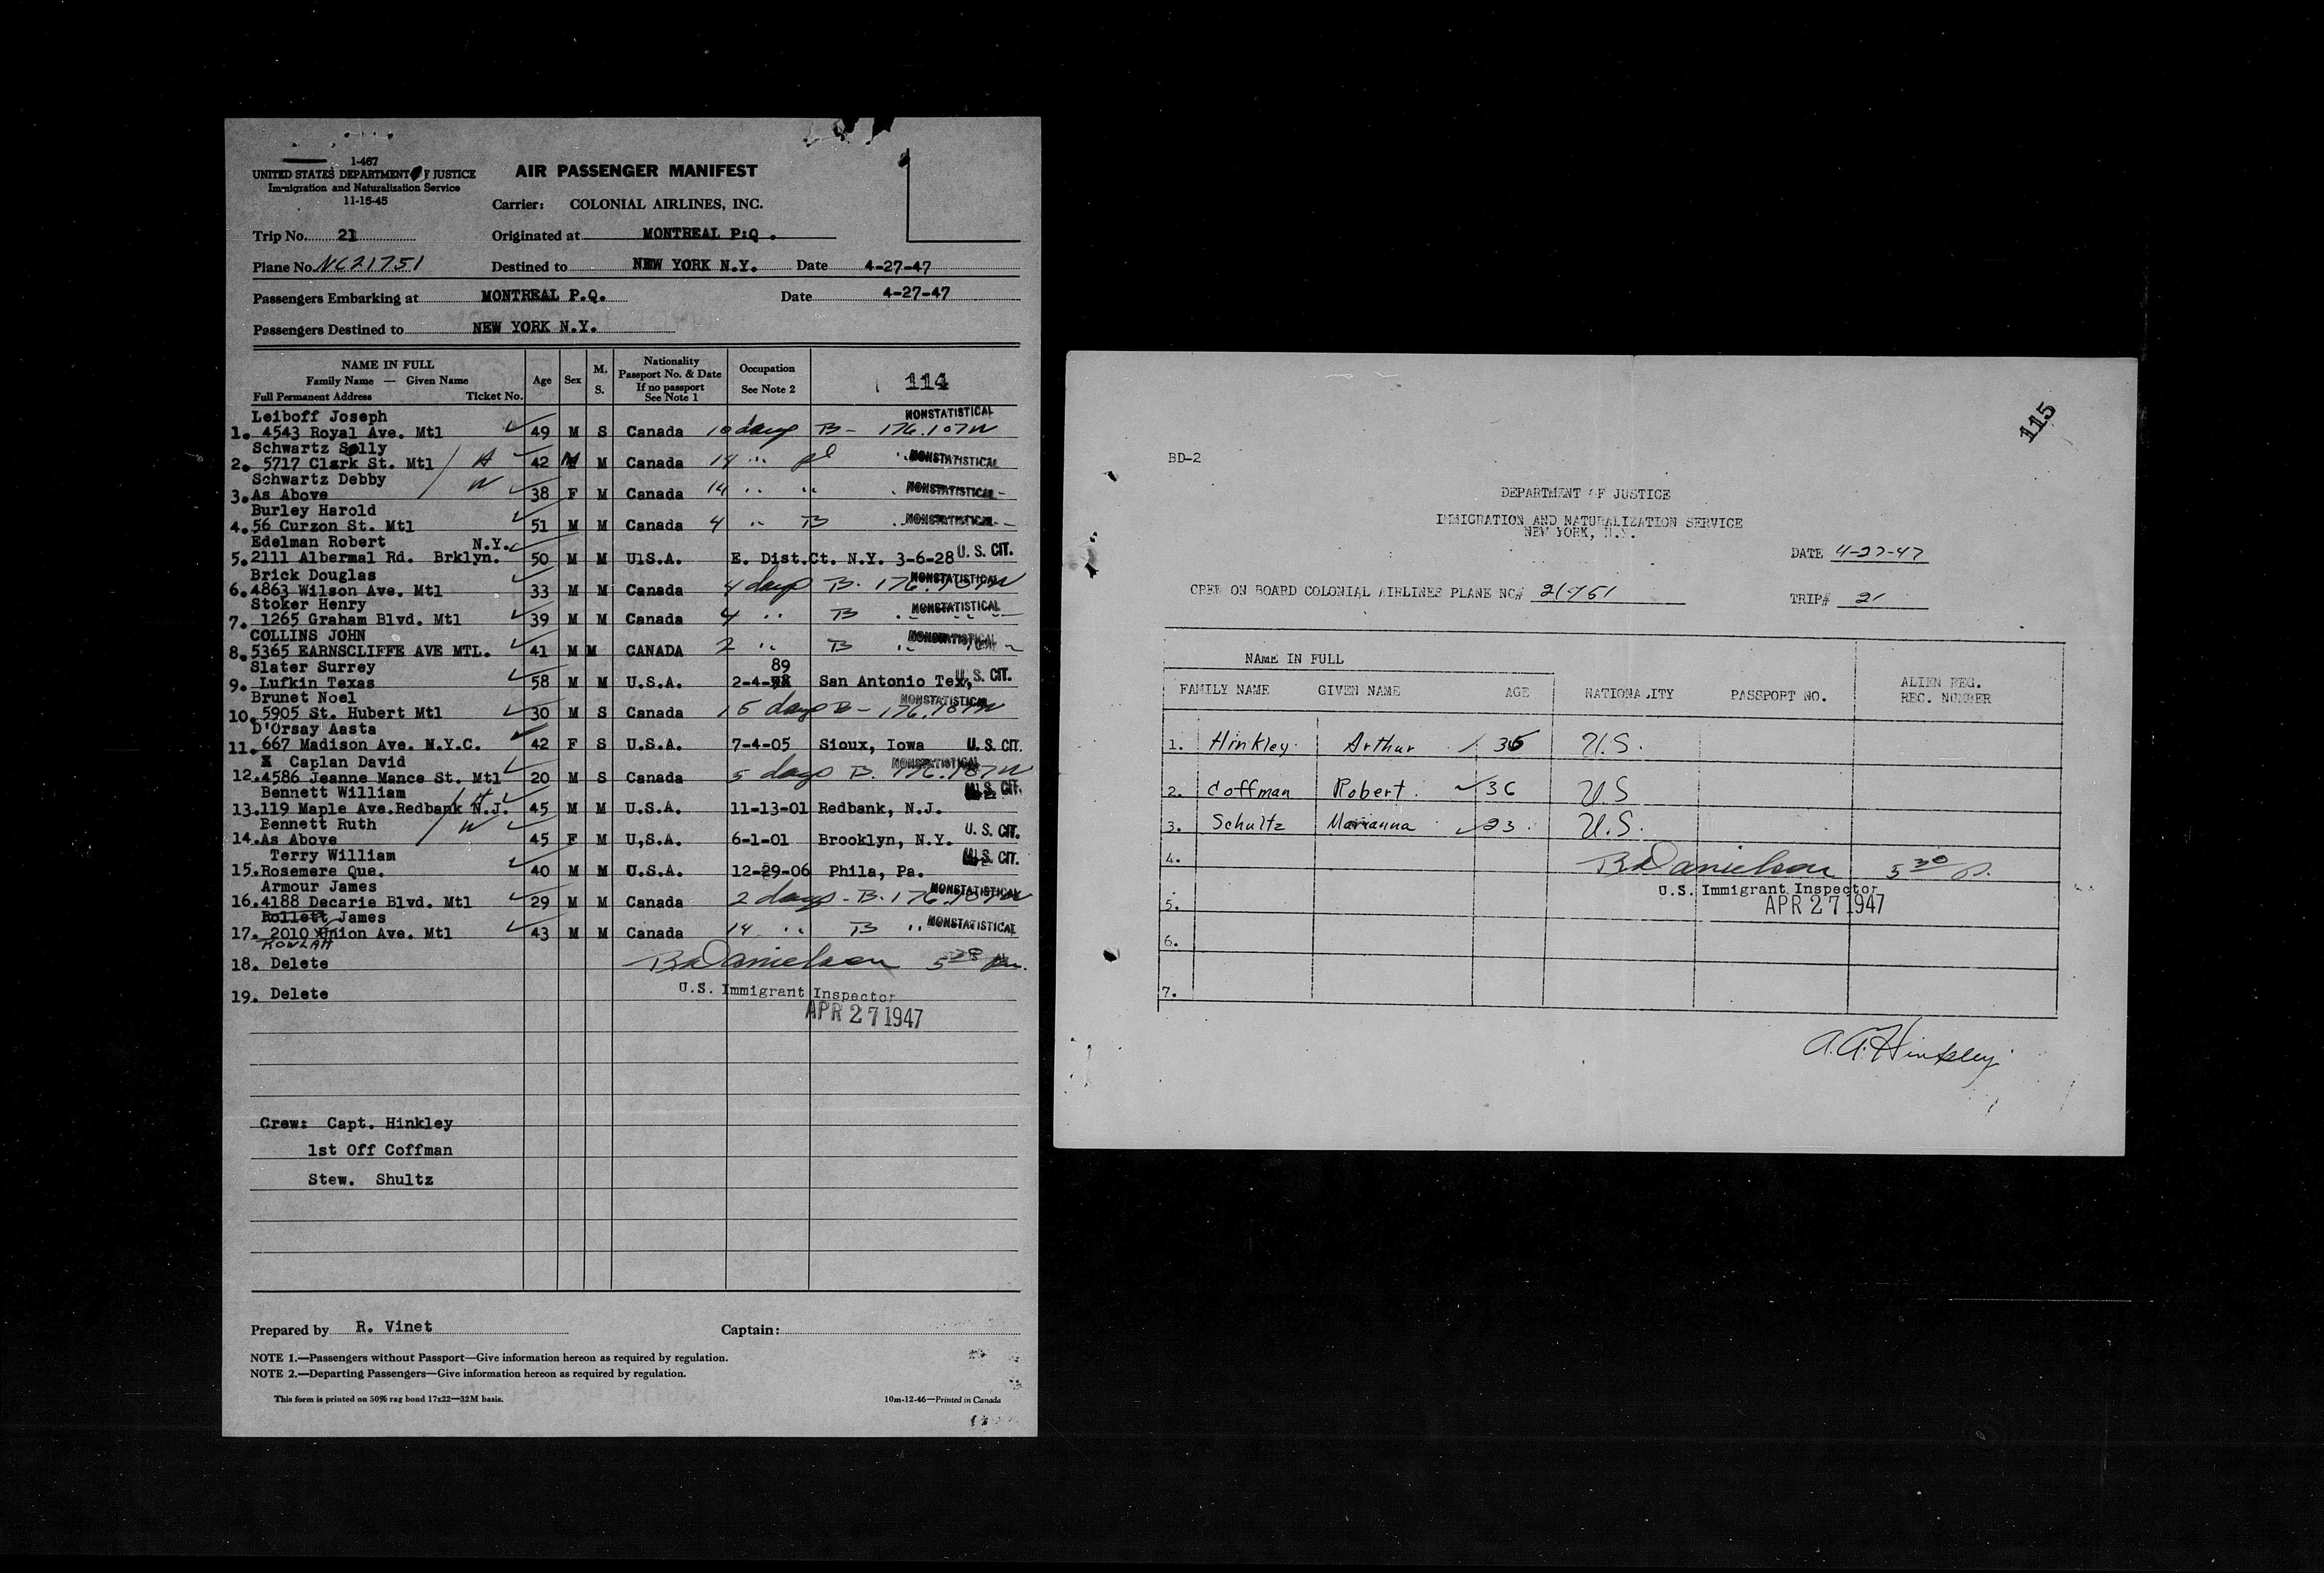 1-467
UNITED STATES DEPARTMENT OF JUSTICE
Immigration and Naturalization Service
11-15-45
AIR PASSENGER MANIFEST
Carrier: COLONIAL AIRLINES, INC.
Trip No. 21 Originated at MONTREAL P:Q .
Plane No. NC21751 Destined to NEW YORK N.Y. Date 4-27-47
Passengers Embarking at MONTREAL P.Q. Date 4-27-47
Passengers Destined to NEW YORK N.Y.
NAME IN FULL
Family Name — Given Name
Full Permanent Address Ticket No.
Age Sex M. S.
Nationality
Passport No. & Date
If no passport
See Note 1
Occupation
See Note 2
114
Leiboff Joseph NONSTATISTICAL
1. 4543 Royal Ave. Mtl 49 M S Canada 10 days B - 176.107W
Schwartz Solly
2. 5717 Clark St. Mtl H 42 M M Canada 14 " pl " NONSTATISTICAL
Schwartz Debby W
3. As Above 38 F M Canada 14 " " NONSTATISTICAL
Burley Harold
4. 56 Curzon St. Mtl 51 M M Canada 4 " B NONSTATISTICAL
Edelman Robert N.Y.
5. 2111 Albermal Rd. Brklyn. 50 M M UlS.A. E. Dist.Ct. N.Y. 3-6-28 U. S. CIT.
Brick Douglas NONSTATISTICAL
6. 4863 Wilson Ave. Mtl 33 M M Canada 4 days B. 176.107W
Stoker Henry NONSTATISTICAL
7. 1265 Graham Blvd. Mtl 39 M M Canada 4 " B
COLLINS JOHN NONSTATISTICAL
8. 5365 EARNSCLIFFE AVE MTL. 41 M M CANADA 2 " B "
Slater Surrey 89
9. Lufkin Texas 58 M M U.S.A. 2-4- San Antonio Tex, U. S. CIT.
Brunet Noel NONSTATISTICAL
10. 5905 St. Hubert Mtl 30 M S Canada 15 days B - 176.107W
D'Orsay Aasta
11. 667 Madison Ave. N.Y.C. 42 F S U.S.A. 7-4-05 Sioux, Iowa U. S. CIT.
X Caplan David NONSTATISTICAL
12. 4586 Jeanne Mance St. Mtl 20 M S Canada 5 days B. 176.107W
Bennett William H U. S. CIT.
13. 119 Maple Ave.Redbank N.J. 45 M M U.S.A. 11-13-01 Redbank, N.J.
Bennett Ruth W U. S. CIT.
14. As Above 45 F M U,S.A. 6-1-01 Brooklyn, N.Y.
Terry William U. S. CIT.
15. Rosemere Que. 40 M M U.S.A. 12-29-06 Phila, Pa.
Armour James NONSTATISTICAL
16. 4188 Decarie Blvd. Mtl 29 M M Canada 2 days - B. 176.107W
Rollett James NONSTATISTICAL
17. 2010 Union Ave. Mtl 43 M M Canada 14 " B "
ROWLAH
18. Delete Danielson 5 30 pm.
19. Delete U.S. Immigrant Inspector
APR 27 1947
Crew: Capt. Hinkley
1st Off Coffman
Stew. Shultz
Prepared by R. Vinet Captain:
NOTE 1.—Passengers without Passport—Give information hereon as required by regulation.
NOTE 2.—Departing Passengers—Give information hereon as required by regulation.
This form is printed on 50% rag bond 17x22—32M basis. 10m-12-46—Printed in Canada
115
BD-2
DEPARTMENT OF JUSTICE
IMMIGRATION AND NATURALIZATION SERVICE
NEW YORK, N.Y.
DATE 4-27-47
CREW ON BOARD COLONIAL AIRLINES PLANE NC# 21751 TRIP# 21
NAME IN FULL
FAMILY NAME GIVEN NAME AGE NATIONALITY PASSPORT NO. ALIEN REG. REG. NUMBER
1. Hinkley Arthur 35 U.S.
2. Coffman Robert. 36 U.S
3. Schultz Marianna 23 U.S.
4. Danielson 5 30 p.
U.S. Immigrant Inspector
5. APR 27 1947
6.
7.
A.A. Hinkley